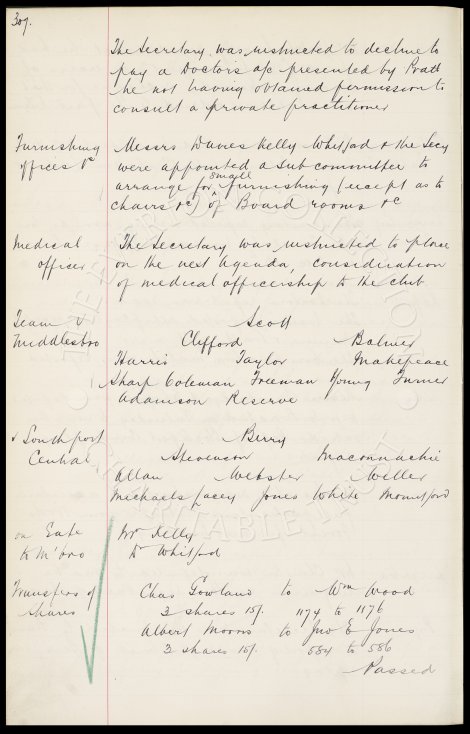 307.
The Secretary was instructed to decline to
pay a Doctors a/c presented by Pratt
he not having obtained permission to
consult a private practitioner
Furnishing Messrs Davies Kelly Whitford & the Secy
offices &c were appointed a sub committee to
arrange for small furnishing (except as to
chairs &c) of Board rooms &c
Medical The Secretary was instructed to place
officer on the next Agenda, consideration
of medical officership to the club
Team v Scott
Middlesbro Clifford Balmer
Harris Taylor Makepeace
Sharp Coleman Freeman Young Turner
Adamson Reserve
v Southport Berry
Central Stevenson Maconnachie
Allan Webster
Michaels Lacey Jones White Mountford
on Gate Mr Kelly
to M'bro Dr Whitford
Transfers of Chas Gowland to Wm Wood
shares 3 shares 15/. 1174 to 1176
Albert Morris to Jno E Jones
3 shares 15/. 584 to 586
Passed